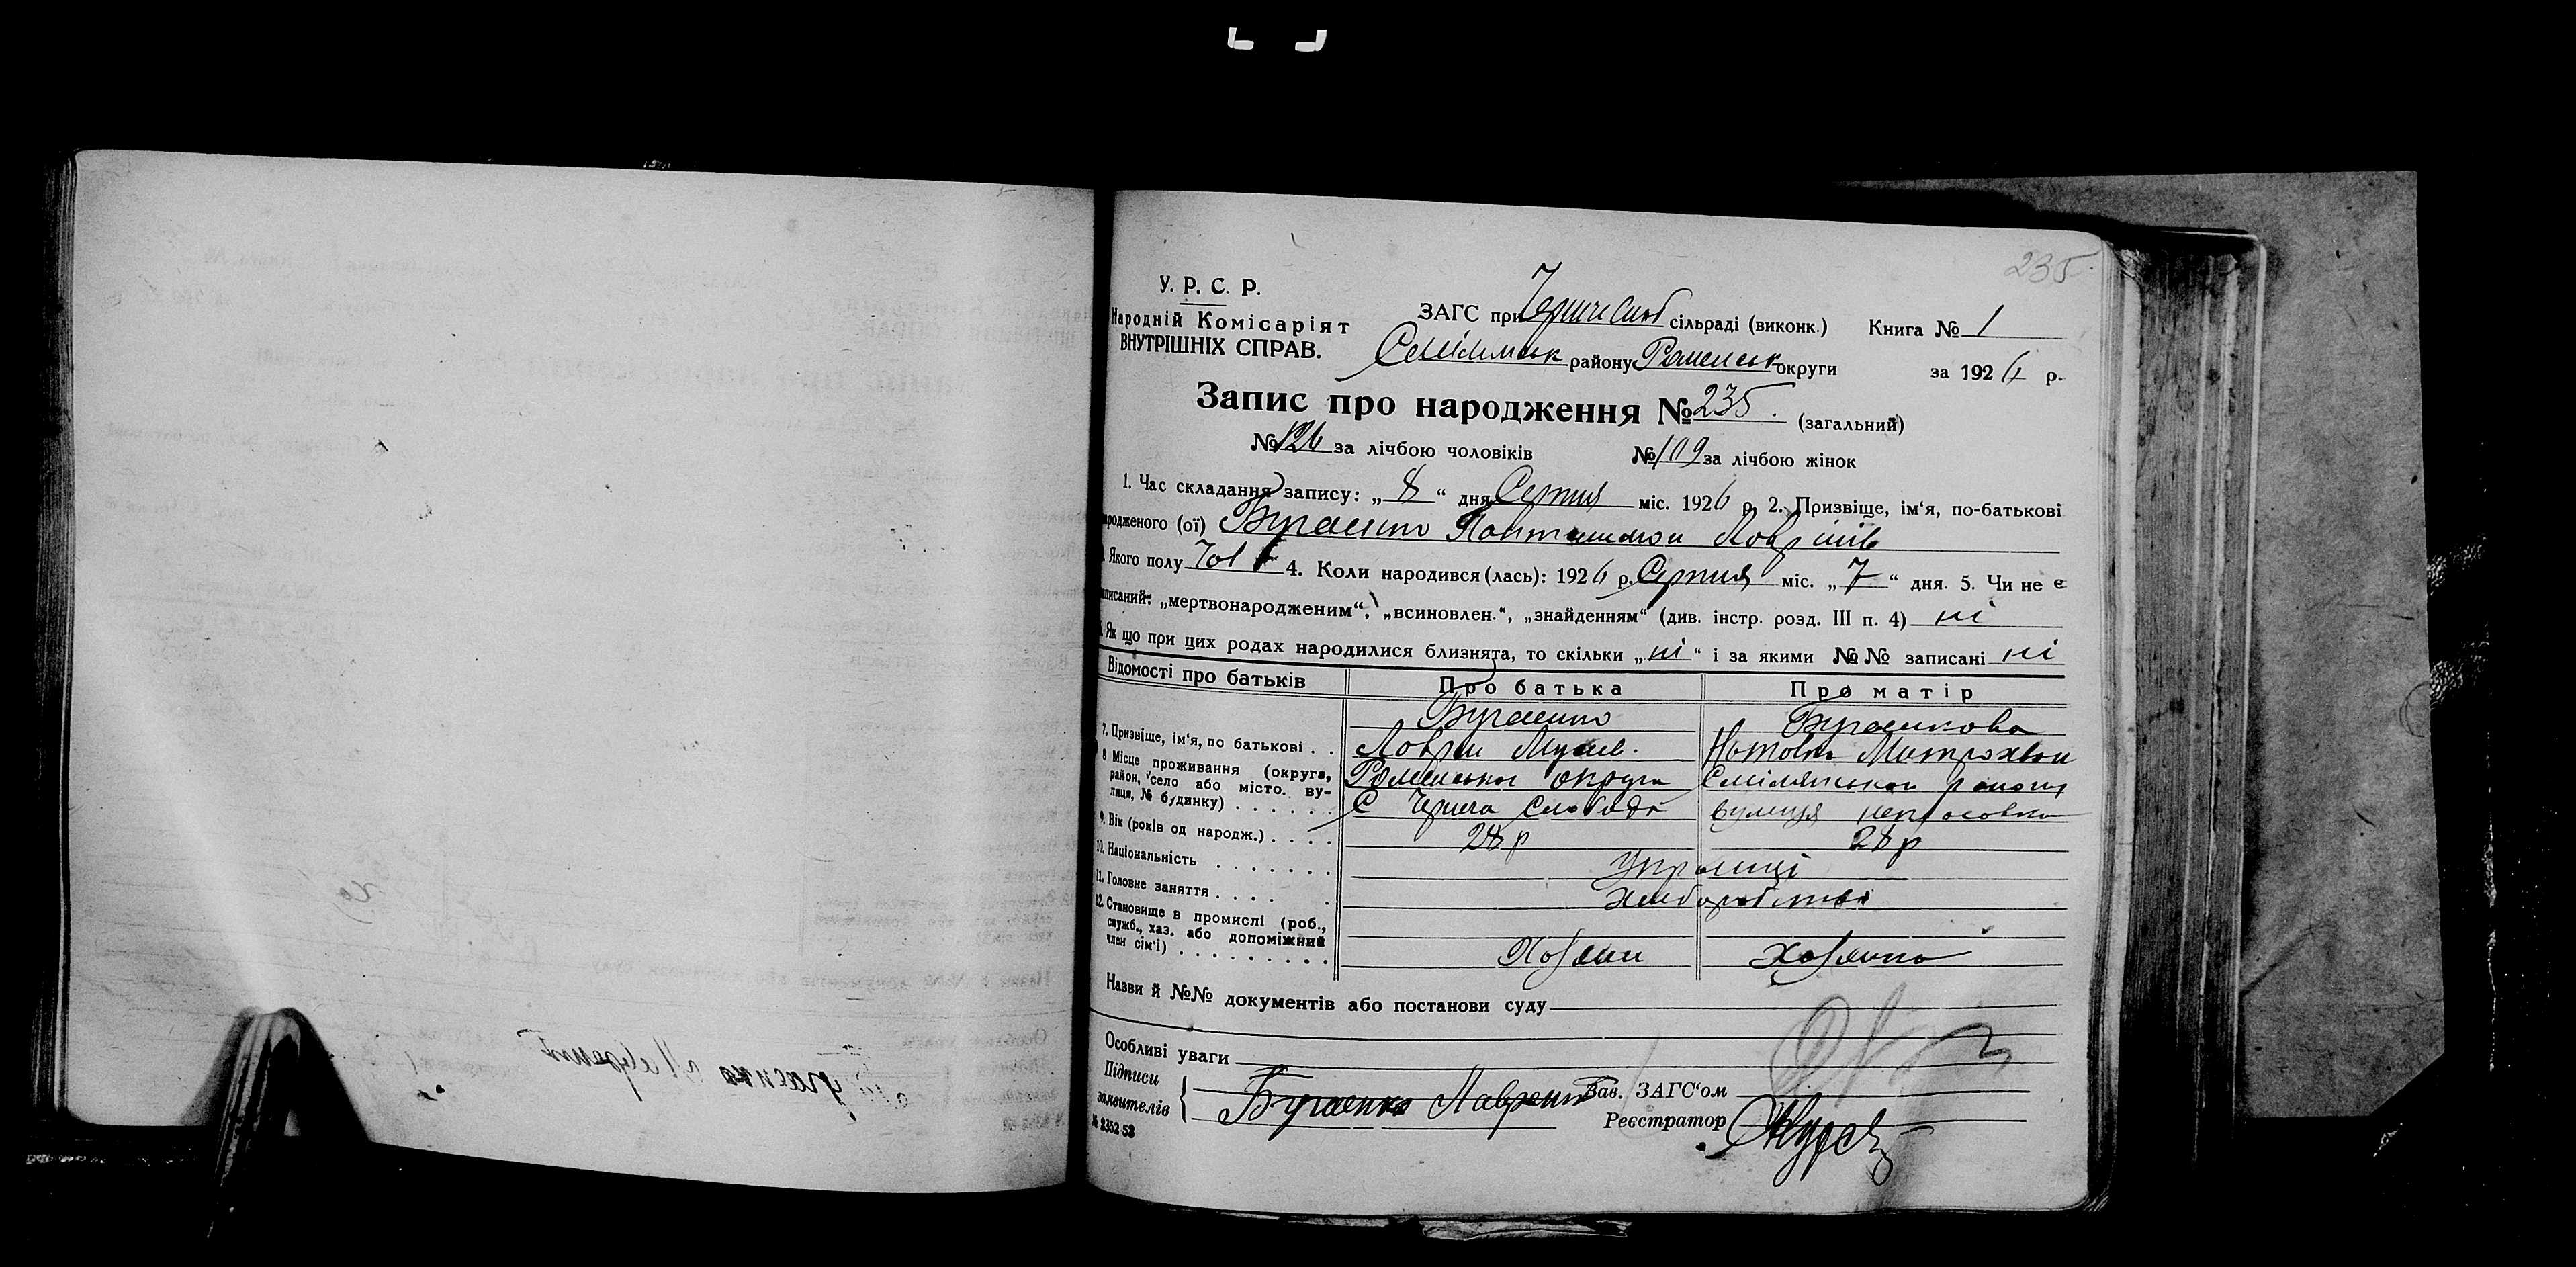 235
У. Р. С. Р.
Народній Комісаріят
ВНУТРІШНІХ СПРАВ.
ЗАГС при сільраді (виконк.) Книга № 1
району Роменськ округи за 1926 р.
Запис про народження № 235. (загальний)
№ 126 за лічбою чоловіків № 109 за лічбою жінок
1. Час складання запису: „ 8 “ дня Серпня міс. 1926 р. 2. Призвіще, ім‘я, по-батькові
родженого (ої) Бугаенко Пантилимон
Якого полу Чол 4. Коли народився (лась): 1926 р. Серпня міс. „ 7 “ дня. 5. Чи не є
писаний: „мертвонародженим“, „всиновлен.“, „знайденням“ (див. інстр. розд. III п. 4) ні
Як що при цих родах народилися близнята, то скільки „ ні “ і за якими №№ записані ні
Відомості про батьків Про батька Про матір
Бугаенко Бугаенкова
7. Призвіще, ім‘я, по батькові . . Лаврін Мусие.
8 Місце проживання (округа, Роменської округи Смілянського району
район, село або місто. ву-
лиця, № будинку) . . . . . С Чернеча Слобода вулиця
9. Вік (років од народж.) . . . . 28 р 28 р
10. Національність . . . . . . . Українці
11. Головне заняття . . . . . Хліборобство
12. Становище в промислі (роб.,
служб., хаз. або допоміжний
член сім‘ї) . . . . . . . . . Хозяин Хозяика
Назви й №№ документів або постанови суду
Особливі уваги
Підписи
заявителів { Бугаенко Лаврент Зав. ЗАГС‘ом
Реєстратор
№ 2352 53